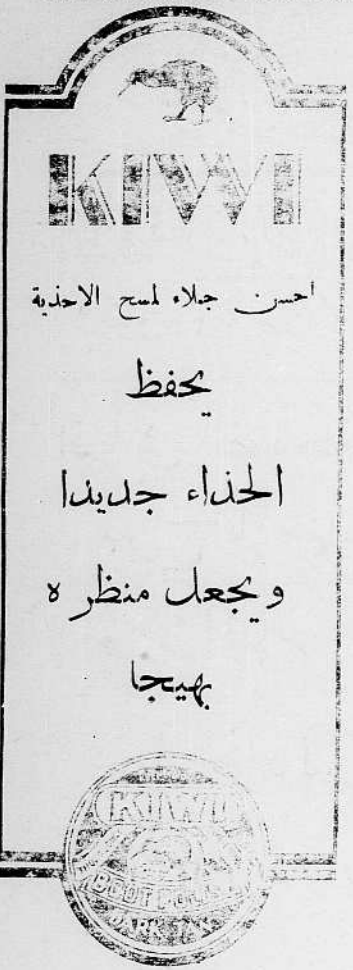 KIWI
احسن جلاء لمسح الاحذية
يحفظ
الحذاء جديدا
ويجعل منظره
بهيجا
KIWI
BOOT POLISH
DARK TAN